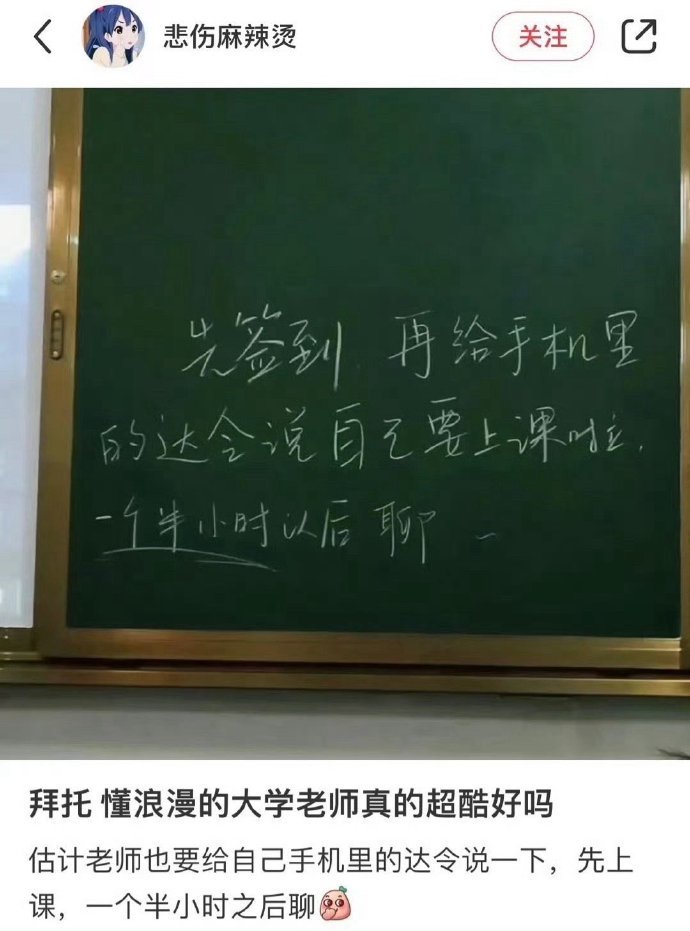 悲伤麻辣烫
关注
先签到，再给手机里
的达令说自己要上课啦，
一个半小时以后聊
拜托 懂浪漫的大学老师真的超酷好吗
估计老师也要给自己手机里的达令说一下，先上
课，一个半小时之后聊